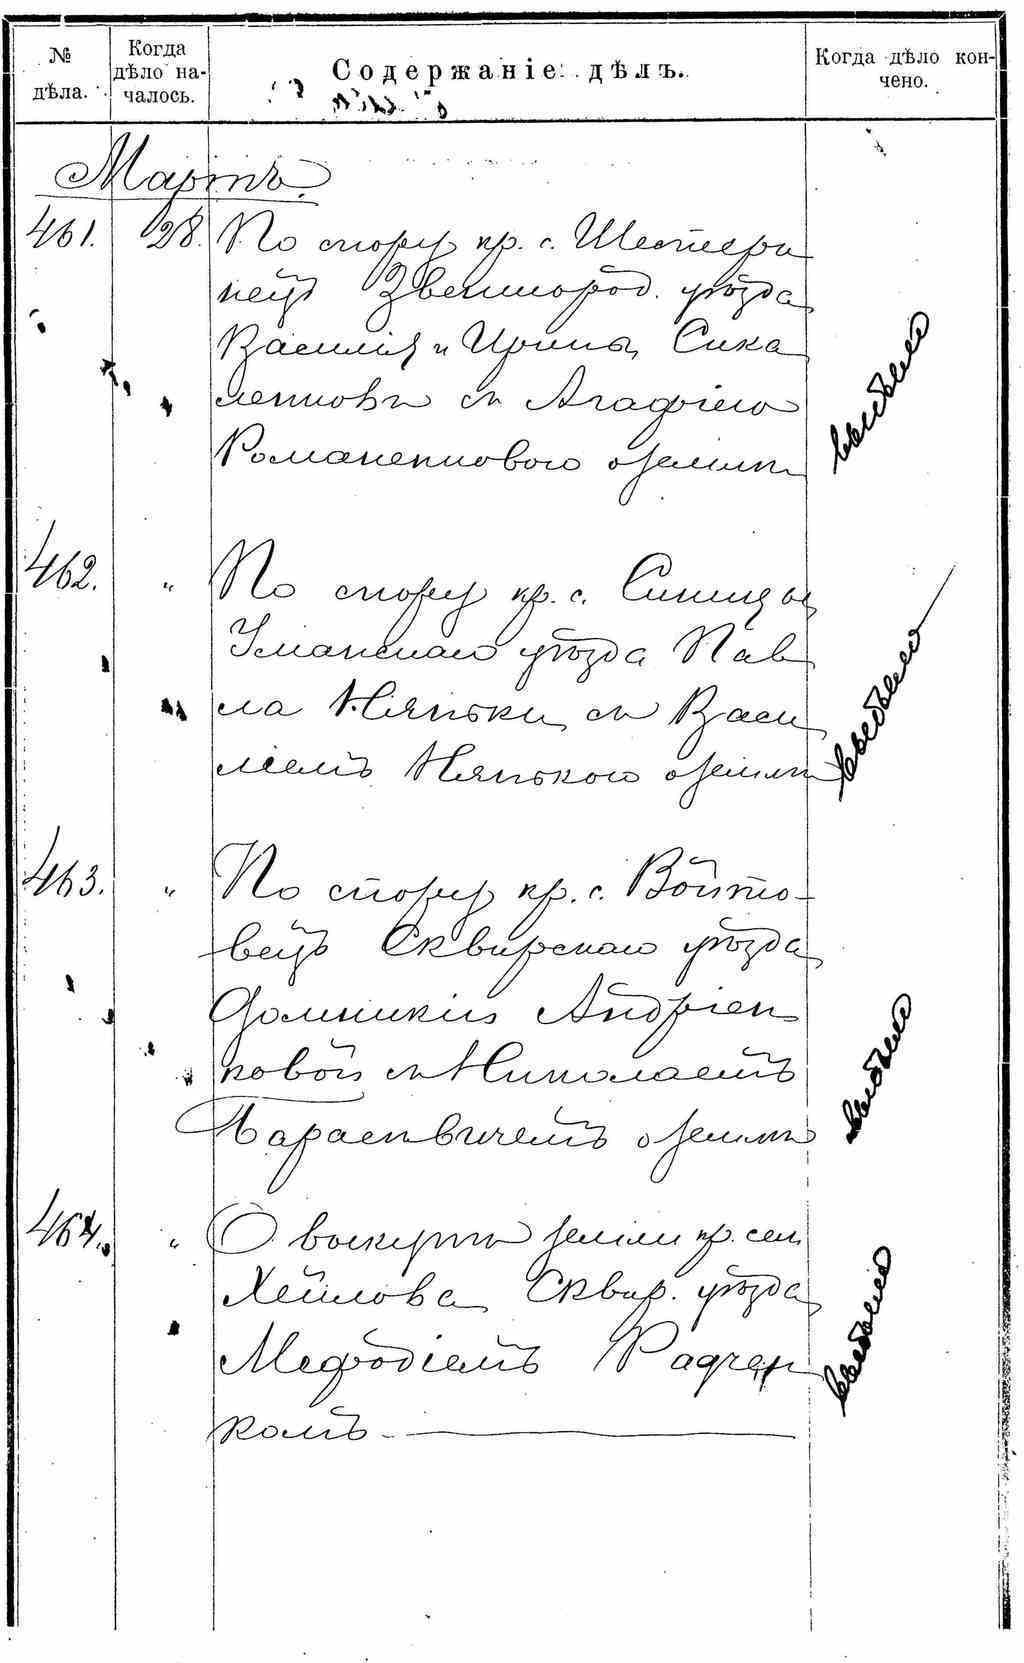 № дѣла.
Когда дѣло началось.
Содержаніе дѣлъ.
Когда дѣло кончено.
Мартъ.
461. 28. По спору кр. с. Шестери
нецъ Звенигород. уѣзда
Василія и Ирины Сика
ленковъ съ Агафіею
Романенковою о землѣ
выбыло
462. " По спору кр. с. Синицы
Уманскаго уѣзда Пав
ла Няньки съ Васи
ліемъ Нянькою о землѣ
выбыло
463. " По спору кр. с. Войто-
вецъ Сквирскаго уѣзда
Домникіи Андріен
ковой съ Николаемъ
о землѣ
выбыло
464. " О выкупѣ земли кр. сел.
Хейлова Сквир. уѣзда
Мефодіемъ Радчен
комъ
выбыло